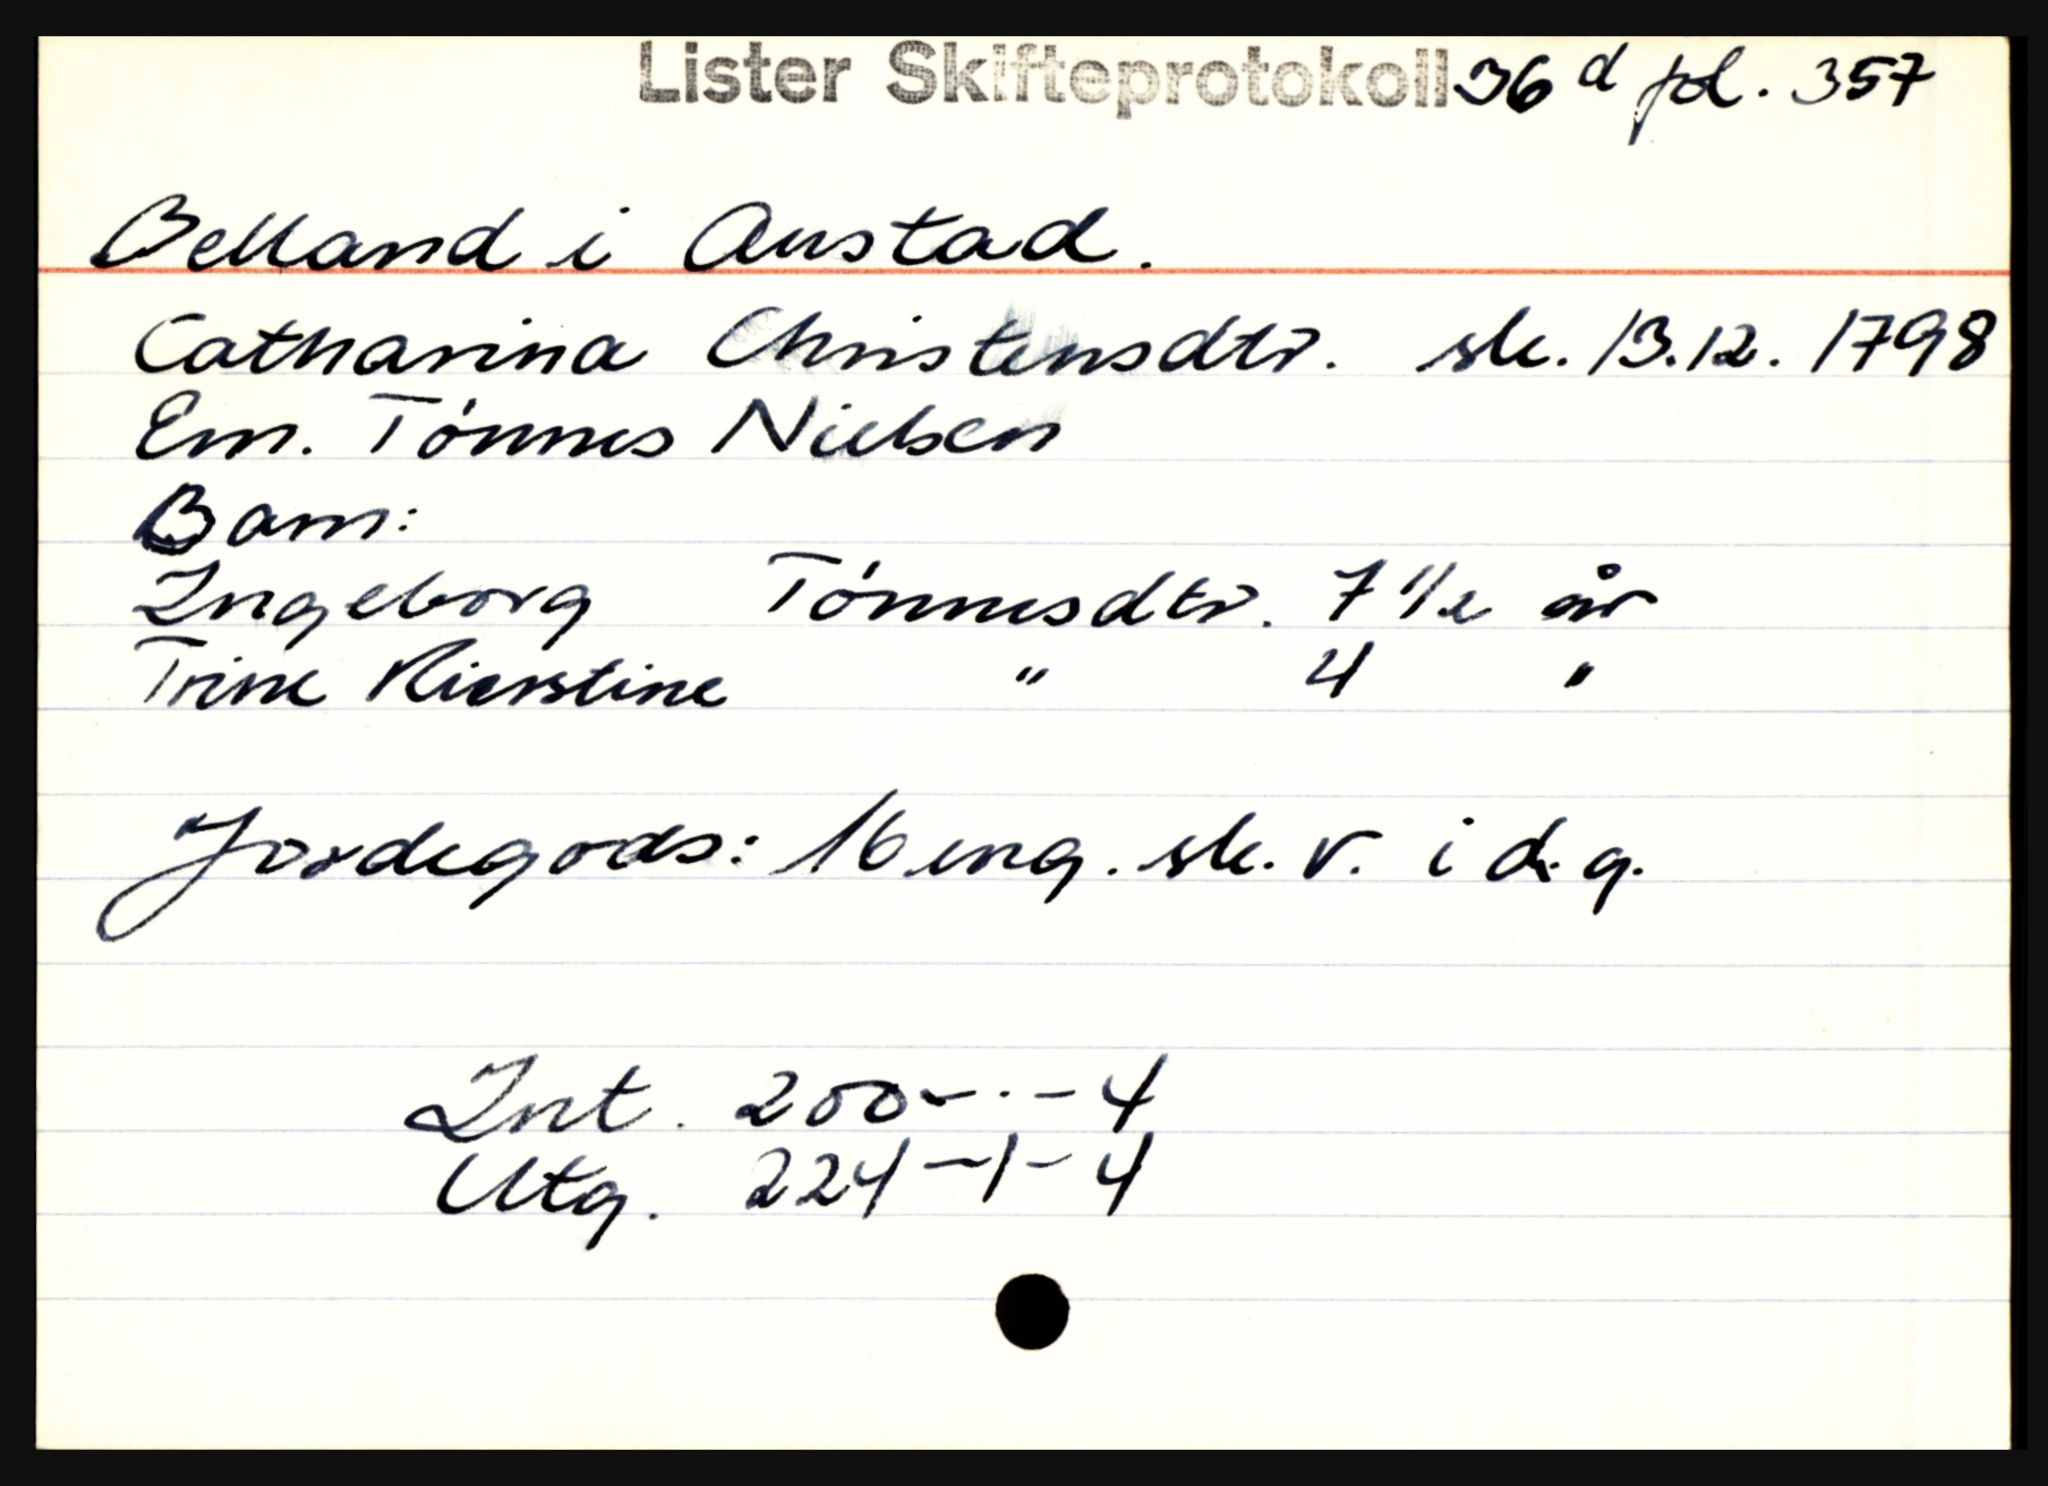 Lister Skifteprotokoll 36 d fol. 357
Belland i Austad.
Catharina Christensdtr. sk. 13.12. 1798
Em. Tónnes Nielsen
Barn:
Ingeborg Tónnesdtr. 7 1/2 år
Trine Kierstine " 4 "
Jordegods: 16 eng. sk. v. i d. g.
Int. 200 - . - 4
Utg. 224 - 1 - 4